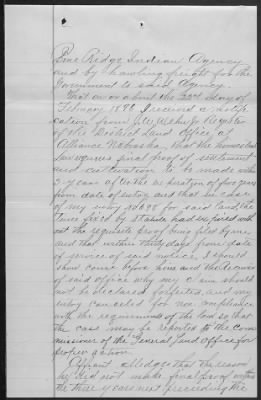 Pine Ridge Indian Agency
and by hauling freight for the
Government to said Agency.
That on or about the 23rd day of
February 1898 I received a notifi
cation from J. W. Wehn Jr. Register
of the District Land Office of
Alliance Nebraska, that the homestead
law requires final proof of settlement
and cultivation to be made within
2 years after the expiration of five years
from date of entry, and that in case
of my entry No 628 for said land, the
time fixed by statute had expired with
out the requisite proof being filed by me,
and that within thirty days from date
of service of said notice, I should
show cause before him and the Receiver
of said office why my claim should
not be declared forfeited and my
entry canceled for non compliance
with the requirements of the law so that
the case may be reported to the Com
missioner of the General Land Office for
proper action.
Affiant alleges that the reason
he did not make final proof within
the three years next preceding the